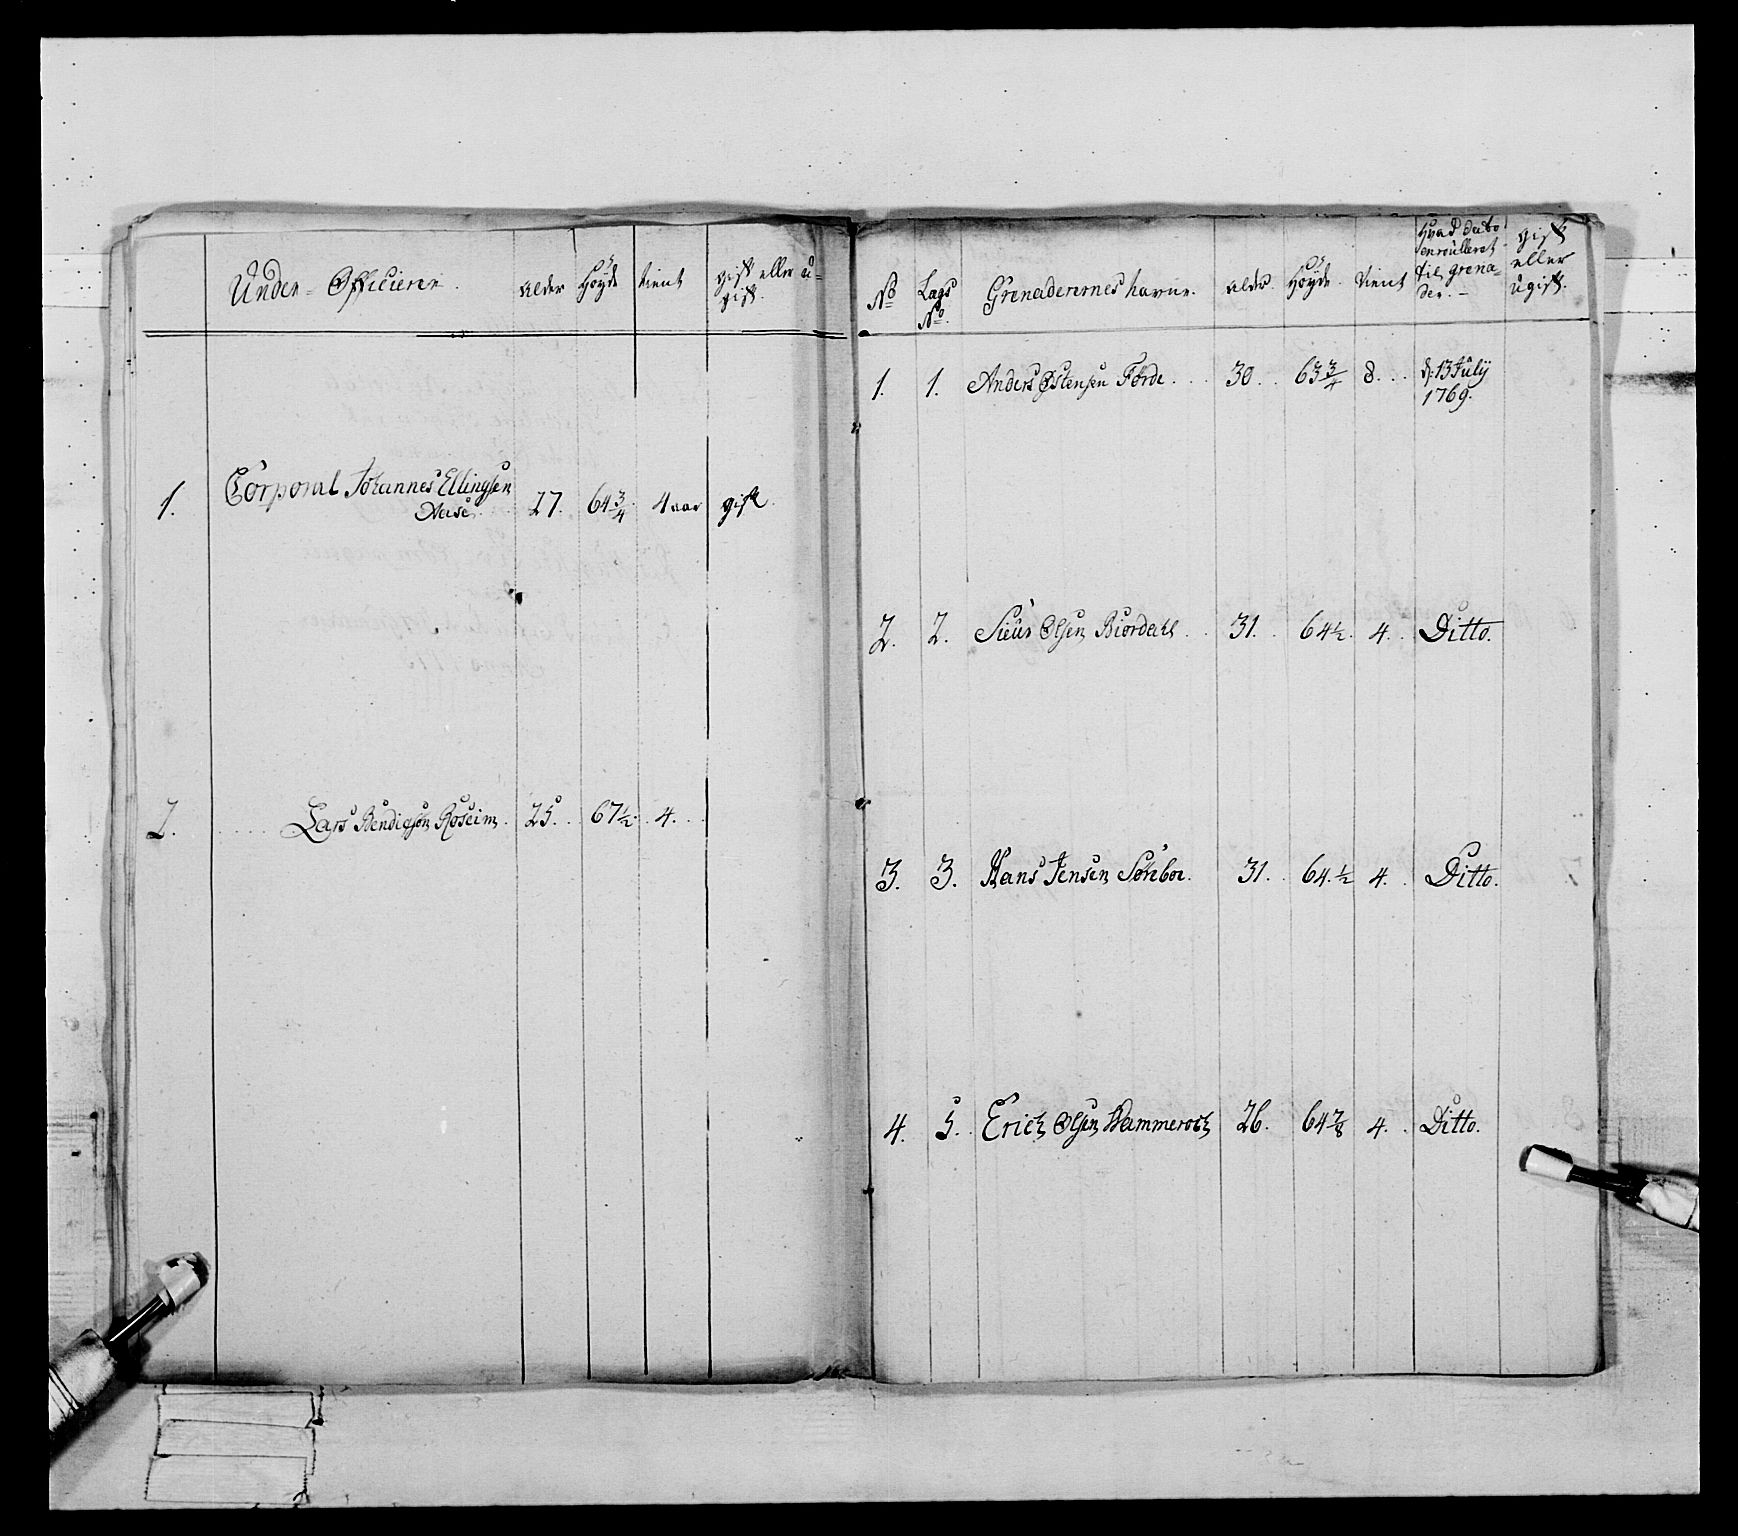 Under-Officierer. alder Høyde tient gift eller u-
gift.
1. Corporal Johannes Ellingsen 27. 64 3/4 4 aar gift.
Aase.
2. Lars Bendigsøn Roseim. 25. 67 1/2. 4.
No Lags No. Grenaderernes Navne. alder. Høyde. tient Hvad Dato
enroulleret
til grena-
der. gift
eller
ugift.
1. 1. Anders Østensen Førde. 30. 63 3/4 8. d: 13 July
1769.
2. 2. Siur Olsen Biordahl. 31. 64 1/2. 4. Ditto.
3. 3. Hans Jensen Søreboe. 31. 64. 1/2 4. Ditto.
4. 5. Erich Olsen Hammeroch 26. 64 7/8 4. Ditto.